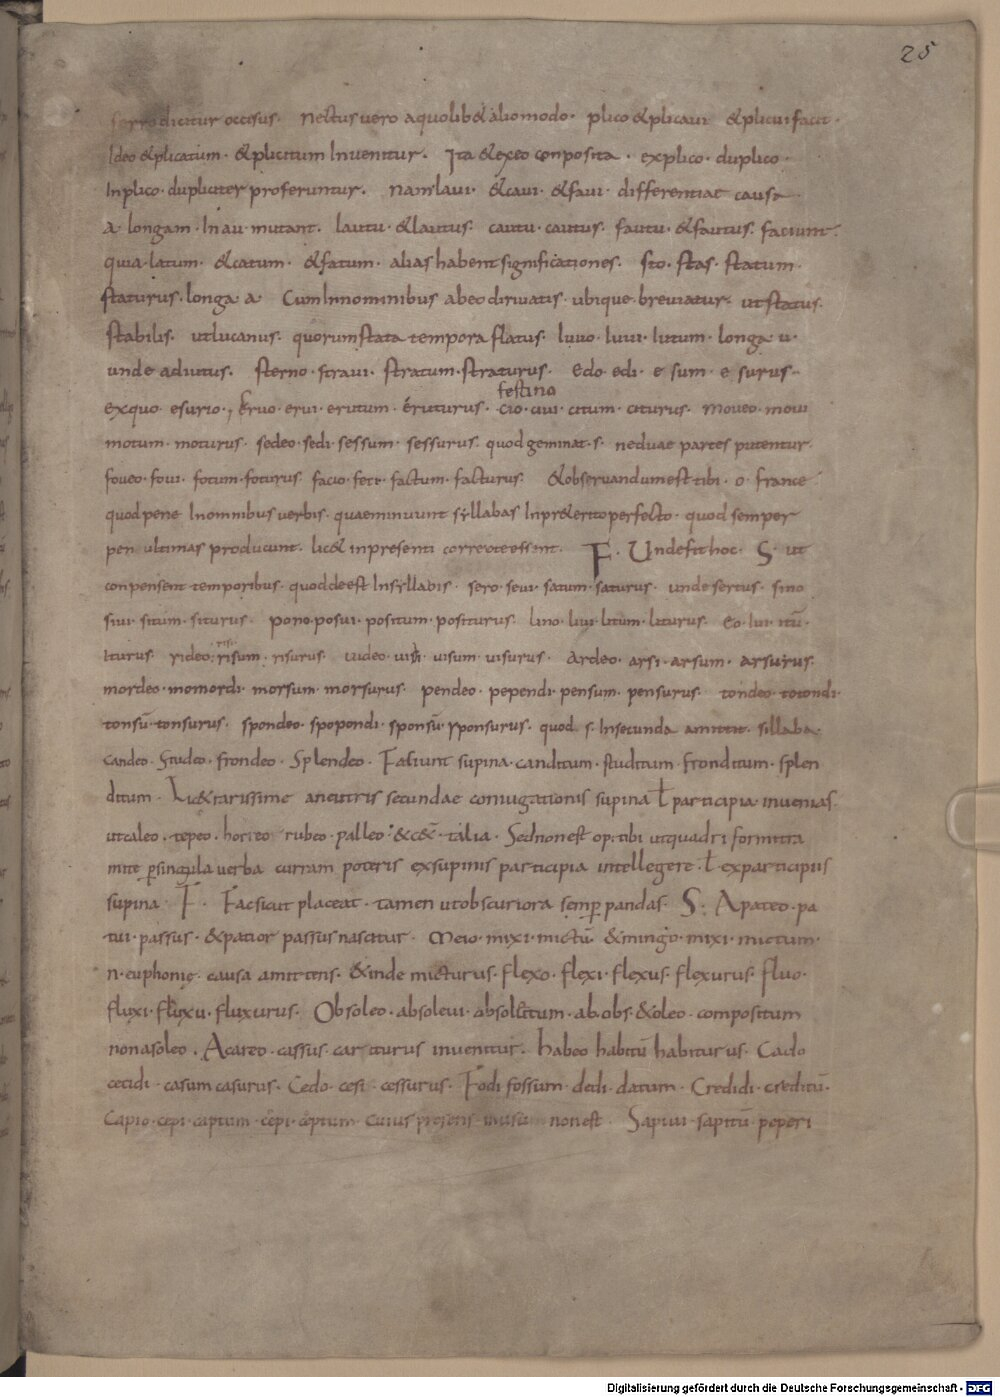 25
ferro dicitur occisus. Nectus vero a quolib& alio modo. plico & plicavi & plicui facit.
Ideo & plicatum. & plicitum Invenitur. Ita & ex eo conposita. explico. duplico.
Inplico. dupliciter proferuntur. Nam lavi. & cavi. & favi. differentiae causa
a. longam. In au. mutant. lautu. & lautus. cautu. cautus. fautu. & fautus. faciunt.
quia latum. & catum. & fatum. alias habent significationes. Sto. stas. statum.
staturus. longa a. Cum In nominibus ab eo dirivatis. ubique breviatur. ut status.
stabilis. ut lucanus. quorum stata tempora flatus. Iuvo. iuvi. iutum. longa u.
unde adiutus. Sterno. stravi. stratum. straturus. Edo. edi. esum. esurus.
festino
ex quo esurio. Eruo. erui. erutum. éruturus. cio. civi. citum. citurus. Moveo. movi
motum. moturus. sedeo. sedi. sessum. sessurus. quod geminat. s. ne duae partes putentur.
foveo. fovi. fotum. foturus. facio. feci. factum. facturus. & observandum est tibi. o. france
quod pene In omnibus verbis. quae minuunt syllabas In pr&erito perfecto. quod semper
penultimas producunt. lic& in presenti correpte essent. F. Unde fit hoc. S. ut
conpensent temporibus. quod deest In syllabis. sero. sevi. satum. saturus. unde sertus. sino
sivi. situm. siturus. pono. posui. positum. positurus. lino. livi. litum. liturus. Eo. ivi. itū.
iturus. rideo. risi. risum. risurus. video. vidi. visum. visurus. Ardeo. arsi. arsum. arsurus.
mordeo. momordi. morsum. morsurus. pendeo. pependi. pensum. pensurus. tondeo. totondi.
tonsū. tonsurus. spondeo. spopondi. sponsū. sponsurus. quod. s. In secunda amittit. sillaba.
Candeo. Studeo. frondeo. Splendeo. Faciunt supina. canditum. studitum. fronditum. splen
ditum. Lic& rarissime a neutris secundae coniugationis supina ł participia invenias.
ut caleo. tepeo. horreo rubeo. palleo. & c&. talia. Sed non est op. tibi ut quadriformitra
mite p singula verba curram poteris ex supinis participia intellegere. ł ex participiis
supina. F. Fac sicut placeat. tamen ut obscuriora semp pandas. S. A pateo. pa
tui. passus. & patior passus nascitur. Meio. mixi. mictū. & mingo. mixi. mictum.
n. euphonię. causa amittens. & inde micturus. flexo. flexi. flexus. flexurus. fluo.
fluxi. fluxu. fluxurus. Obsoleo. absolevi. absolitum. ab. obs. & oleo. compositum
non a soleo. A careo. cassus. cariturus invenitur. Habeo habitū habiturus. Cado
cecidi. casum casurus. Cedo. cesi. cessurus. Fodi fossum. dedi. datum. Credidi. creditū.
Capio. cepi. captum. cępi. cęptum. cuius presens in usu non est. Sapivi. sapitū. peperi
Digitalisierung gefördert durch die Deutsche Forschungsgemeinschaft - DFG